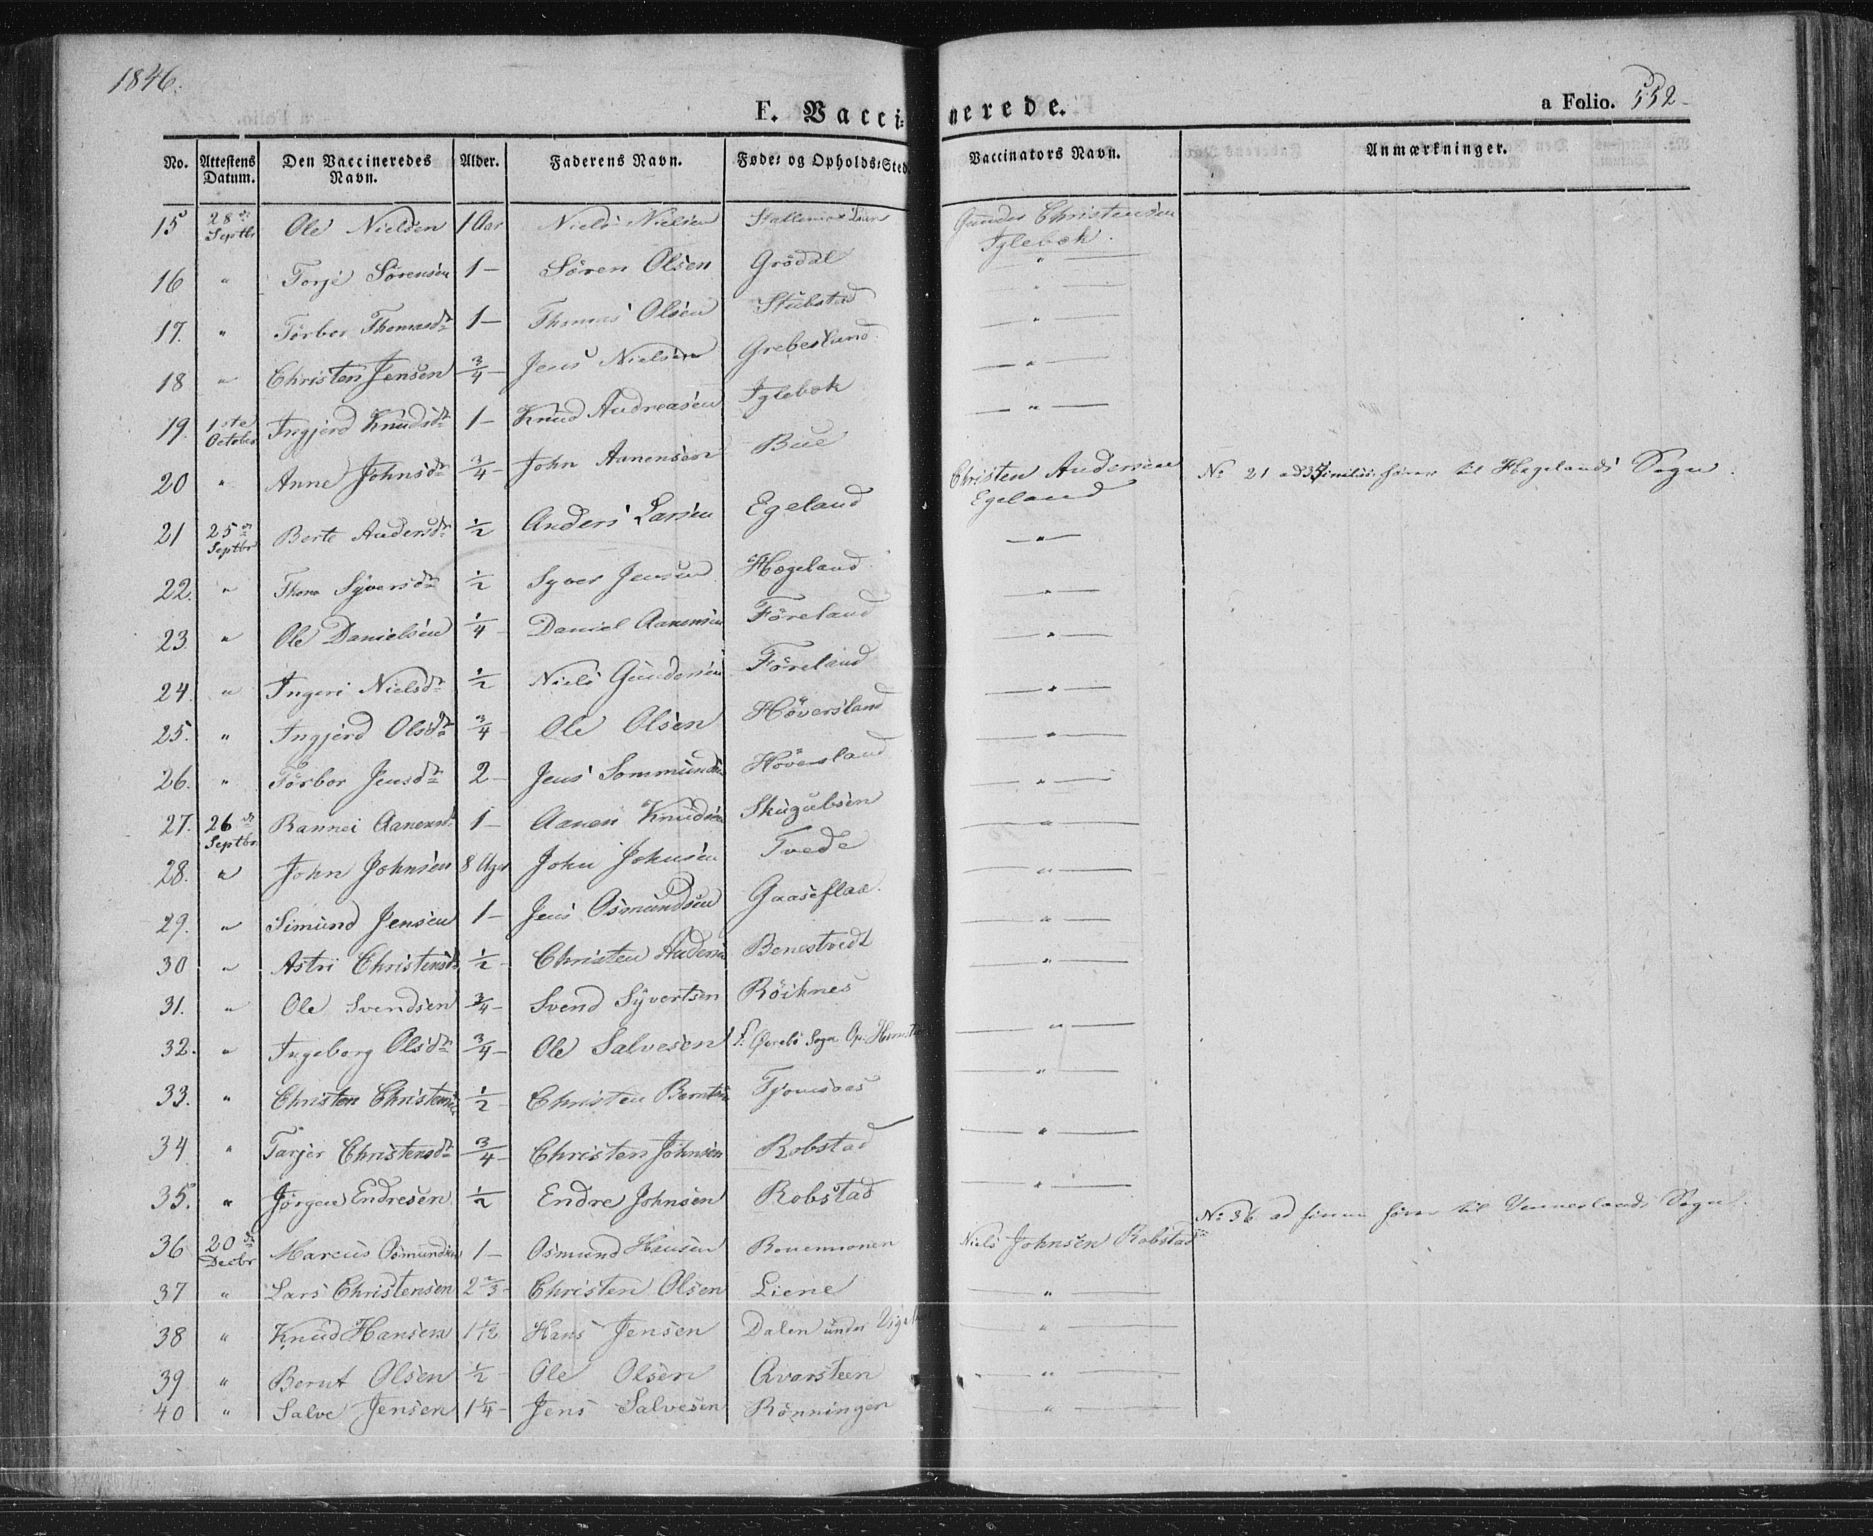 1846.
F. Vaccinerede.
a Folio. 552
No. Attestens Datum. Den Vaccineredes Navn. Alder. Faderens Navn. Føde- og Opholds-Sted. Vaccinators Navn. Anmærkninger.
15 28de Septbr Ole Nielsen 1 Aar Niels Nielsen Gunder Christensen Iglebæk.
16 " Torje Sörensen 1 – Sören Olsen Grödal — " —
17. " Törbor Thomasdtr 1 – Thomas Olsen Stubstad — " —
18 " Christen Jensen 3/4 – Jens Nielsen Grebeslund — " —
19. 1ste October Ingjerd Knudsdtr 1 – Knud Andreasen Iglebæk — " —
20 " Anne Johnsdtr 3/4 – John Aanensen Bue — " —
21 25de Septbr Berte Andersdtr 1/2 Anders Larsen Egeland Christen Andersen Egeland No 21 ad 35 hörer til Hægelands Sogn.
22. " Thore Syversdtr 1/2 Syver Jensen Hægeland — " —
23 " Ole Danielsen 1/4 – Daniel Aanensen Föreland — " —
24. " Ingeri Nielsdtr 1/2 Niels Gundersen Föreland — " —
25. " Ingjerd Olsdtr 3/4 Ole Olsen Höversland — " —
26. " Törbor Jensdtr 2 – Jens Sommundsen Höversland — " —
27. 26de Septbr Rannei Aanensdtr 1 – Aanen Knudsen Skugulsen — " —
28. " John Johnsen 8 Uger John Johnsen Tvede — " —
29. " Simund Jensen 1 – Jens Osmundsen Gaaseflaa. — " —
30 " Astri Christensdtr 1/2 – Christen Andersen Benestvedt — " —
31. " Ole Svendsen 3/4 – Svend Syvertsen Röiknes — " —
32. " Ingeborg Olsdtr 3/4 – Ole Salvesen f. Øvrebö Sogn Op. — " —
33. " Christen Christensen 1/2 – Christen Berntsen Tjomsaas — " —
34 " Tarjer Christensdtr 3/4 – Christen Johnsen Robstad — " —
35. " Jörgen Endresen 1/2 Endre Johnsen Robstad — " —
36 20de Decbr Marcus Osmundsen 1 – Osmund Hansen Bouenmonen Niels Johnsen Robstad No 36 ad finem hörer til Venneslands Sogn.
37 " Lars Christensen 2 2/3 – Christen Olsen Liene — " —
38 " Knud Hansen 1 1/2 Hans Jensen Dalen under — " —
39 " Bernt Olsen 1/2 Ole Olsen Qvarsteen — " —
40 " Salve Jensen 1 1/4 – Jens Salvesen Rönningen — " —